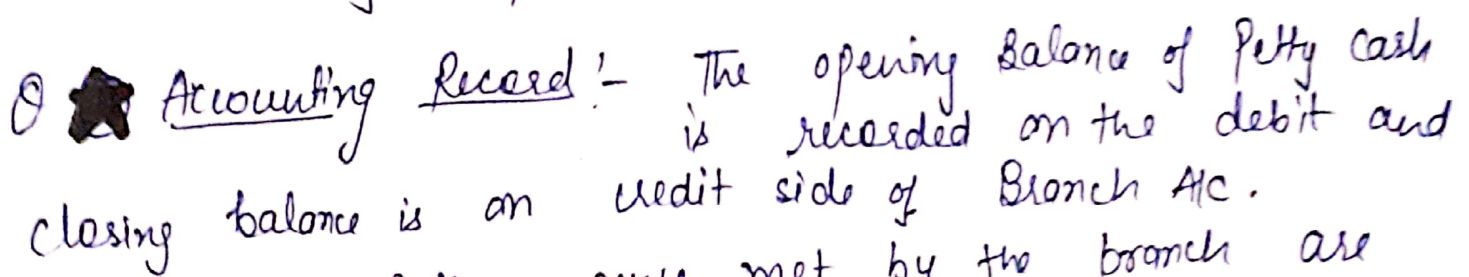 Accounting Record :- The opening Balance of Petty Cash
is recorded on the debit and
closing balance is on credit side of Branch A/C.
met by the branch are